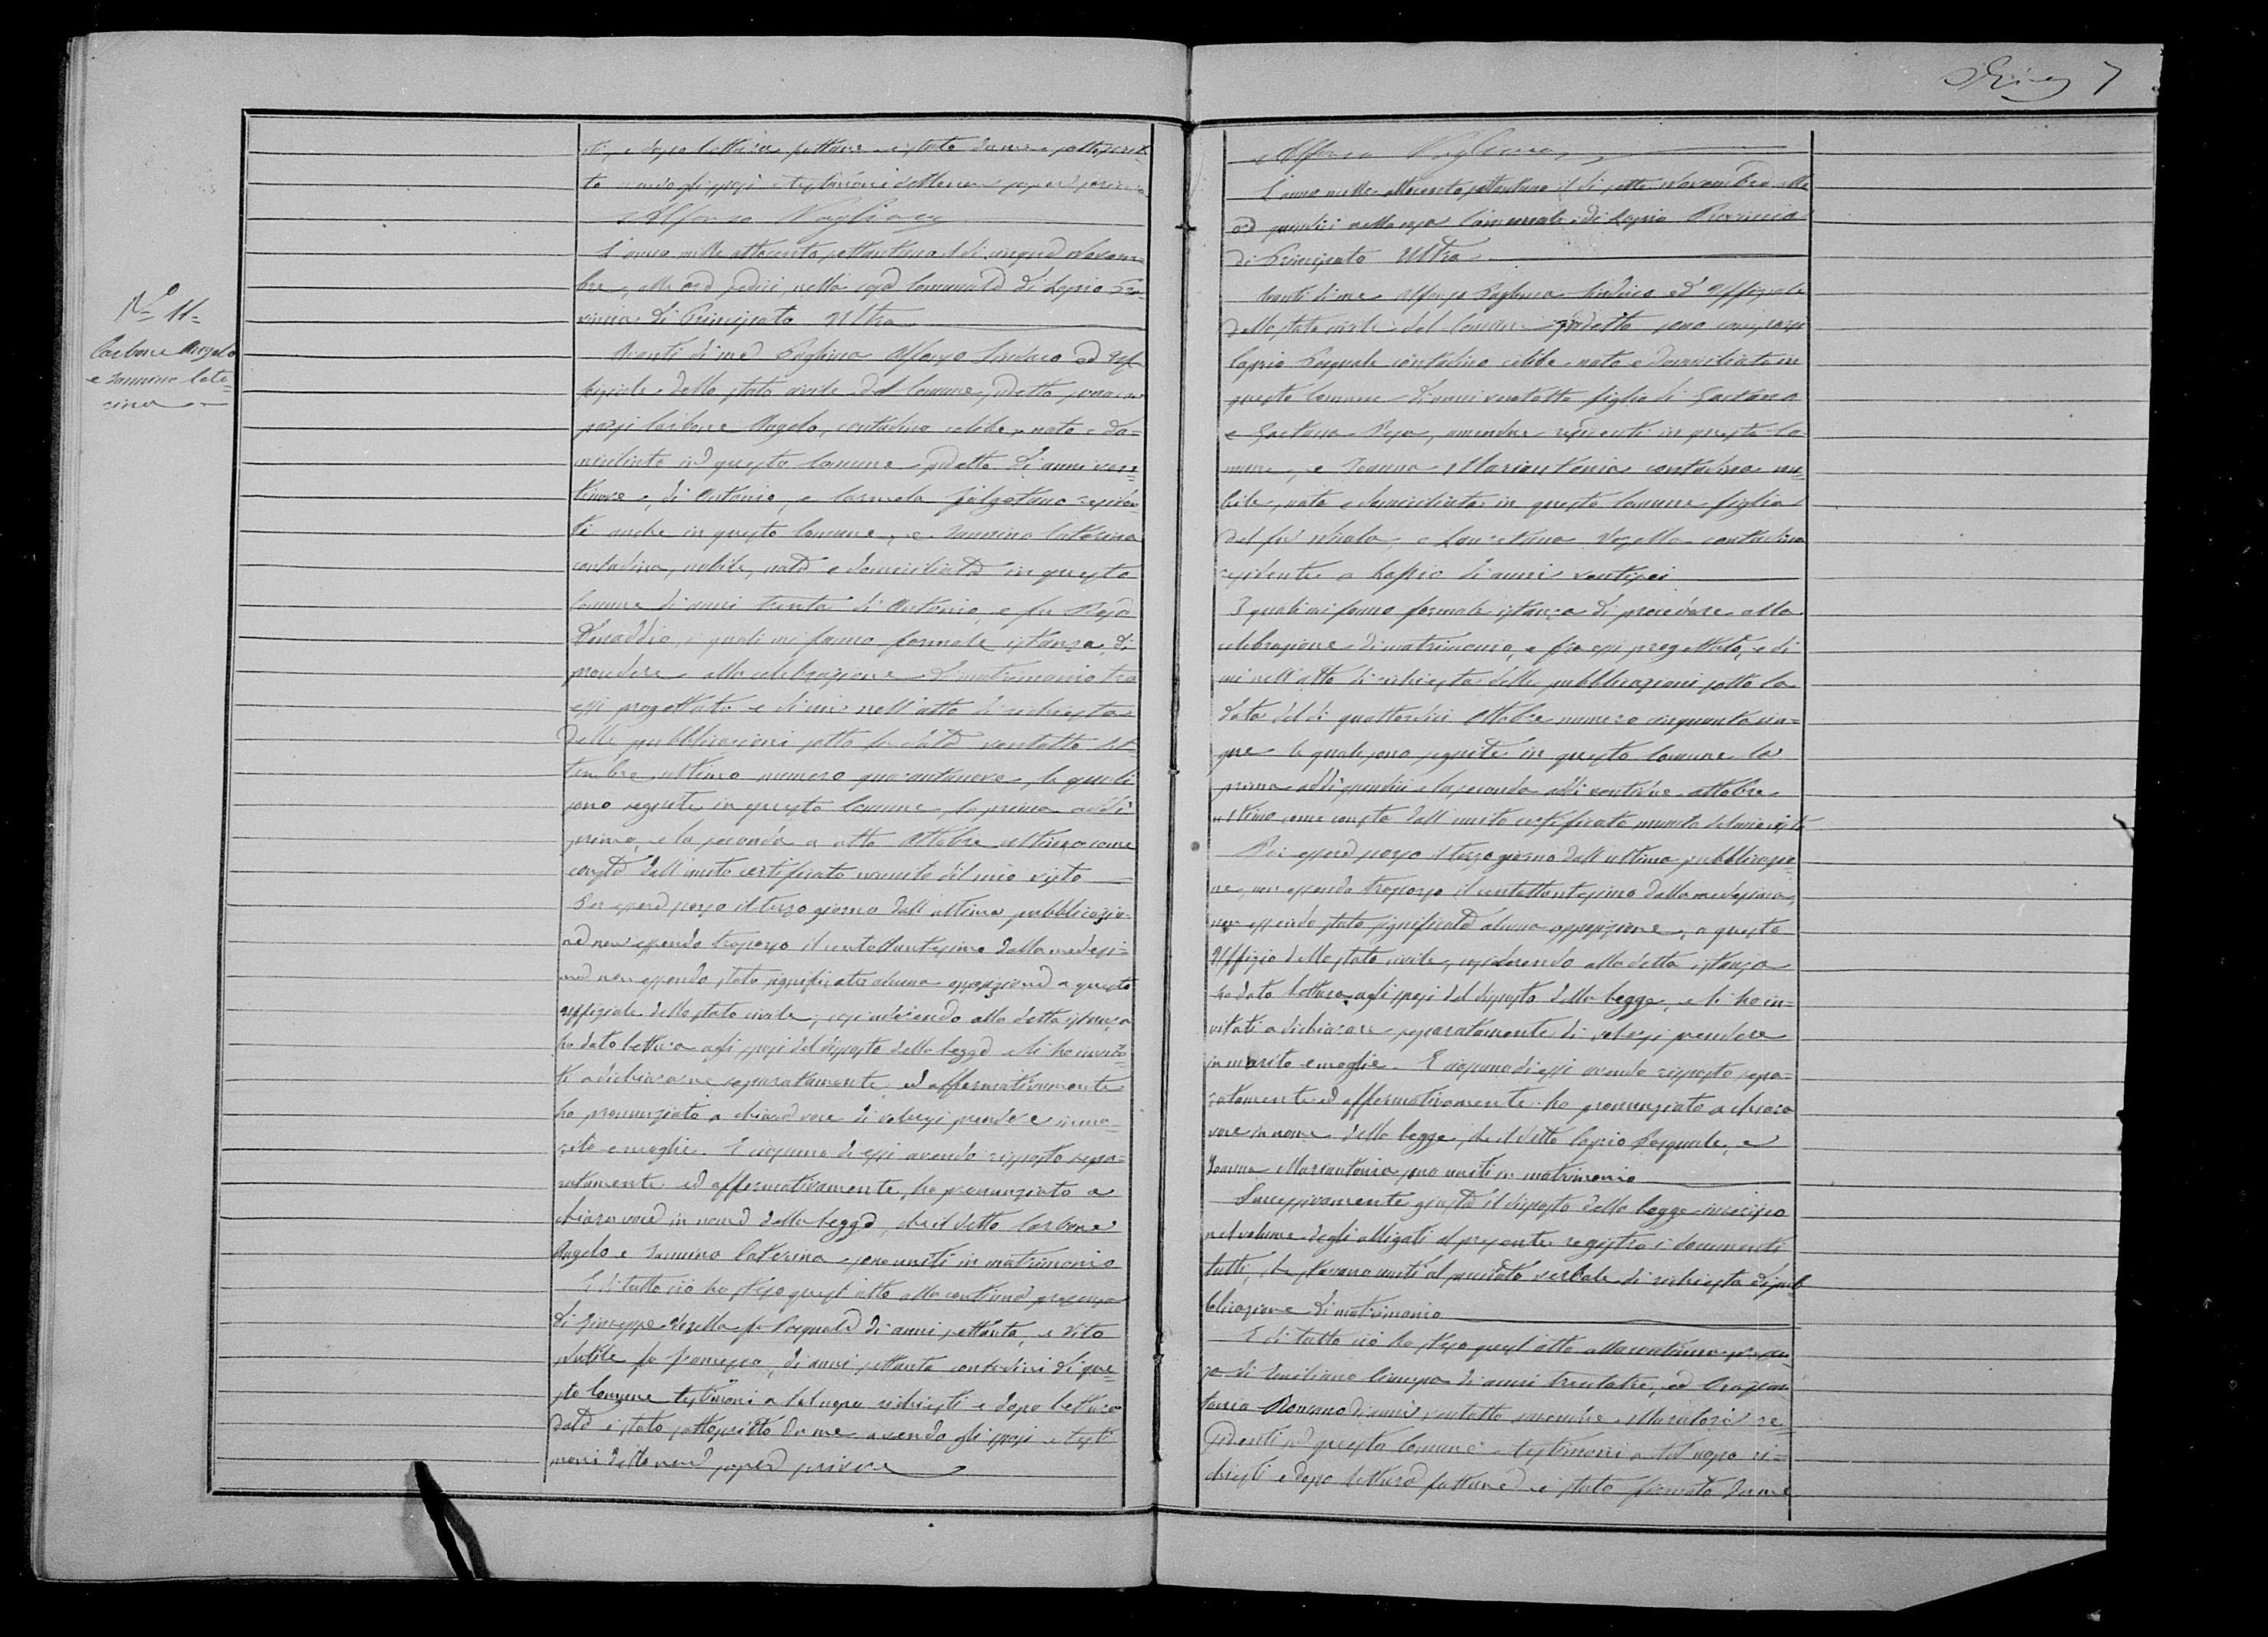 7
ti, e dopo lettura fattane è stato da me sottoscrit-
to avendo gli sposi e testimoni detto non saper scrivere
Alfonso Pagliuca
N.º 11=
Carbone Angelo
e Iannino Cate-
rina
L'anno mille ottocento settantuno il dì cinque Novem-
bre, alle ore sedici, nella casa Comunale di Lapio Pro-
vincia di Principato Ultra
Avanti di me Pagliuca Alfonso Sindaco ed Uf-
fiziale dello stato civile del Comune sudetto sono com-
parsi Carbone Angelo, contadino celibe, nato e do=
miciliato in questo Comune sudetto di anni ven-
tinove, di Antonio, e Carmela residen-
ti anche in questo Comune, e Iannino Caterina
contadina, nubile, nata e domiciliata in questo
Comune di anni trenta di Antonio, e fu Rosa
i quali mi fanno formale istanza, di
procedere alla celebrazione di matrimonio tra
essi progettato e di cui nell'atto di richiesta
delle pubblicazioni sotto la data ventotto Set-
tembre, ultimo numero quarantanove, le quali
sono seguite in questo Comune, la prima addì
primo, e la seconda a otto Ottobre ultimo come
consta dall'unito certificato munito del mio visto
Per essere scorso il terzo giorno dall'ultima pubblicazio-
ne non essendo trascorso il centottantesimo dalla medesi-
ma non essendo stata significata alcuna opposizione a questo
uffiziale dello stato civile, aderendo alla detta istanza
ho dato lettura agli sposi del disposto della legge e li ho invita-
ti a dichiararne separatamente, ed affermativamente
ho pronunziato a chiara voce di volersi prendere in ma-
rito e moglie. E ciascuno di essi avendo risposto sepa=
ratamente ed affermativamente, ho pronunziato a
chiara voce in nome della legge, che il detto Carbone
Angelo e Iannino Caterina sono uniti in matrimonio
E di tutto ciò ho steso quest'atto alla continua presenza
di Giuseppe Vezella fu Pasquale di anni settanta, e Vito
fu Francesco, di anni settanta contadini di que-
sto Comune testimoni a tal uopo richiesti e dopo lettura
data è stato sottoscritto da me avendo gli sposi e testi
moni detto non sapere scrivere
Alfonso Pagliuca
L'anno mille ottocento settantuno il dì sette Novembre alle
ore quindici nella casa Comunale di Lapio Provincia
di Principato Ultra
Avanti di me Alfonso Pagliuca Sindaco ed Uffiziale
dello stato civile del Comune sudetto sono comparsi
Caprio Pasquale contadino celibe nato e domiciliato in
questo Comune di anni ventotto figlio di Gaetano
e Gaetana Pepe, amendue residenti in questo Co-
mune, e Mariantonia contadina nu-
bile, nata e domiciliata in questo Comune figlia
del fu Nicola, e Vezella contadina
residente a Lapio di anni ventisei
I quali mi fanno formale istanza di procedere alla
celebrazione di matrimonio, e fra essi progettato, e di
cui nell'atto di richiesta delle pubblicazioni sotto la
data del dì quattordici Ottobre numero cinquantacin=
que le quali sono seguite in questo Comune la
prima addì quindici e la seconda addì ventidue ottobre
ultimo come consta dall'unito certificato munito del mio visto
Per essere scorso il terzo giorno dall'ultima pubblicazio-
ne, non essendo trascorso il centottantesimo dalla medesima,
non essendo stata significata alcuna opposizione, a questo
Uffizio dello stato civile, aderendo alla detta istanza
ho dato lettura agli sposi del disposto della legge, e li ho in=
vitati a dichiarare separatamente di volersi prendere
in marito e moglie. E ciascuno di essi avendo risposto sepa=
ratamente ed affermativamente ho pronunziato a chiara
voce in nome della legge, che il detto Caprio Pasquale, e
Mariantonia sono uniti in matrimonio
Successivamente giusta il disposto della legge
nel volume degli alligati al presente registro i documenti
tutti, che stavano uniti al verbale di richiesta di pub
blicazione di matrimonio
E di tutto ciò ho steso quest'atto alla continua presen-
za di Emiliano di anni trentatre, ed
Romano di anni ventotto amendue Muratori re=
sidenti in questo Comune testimoni a tal uopo ri=
chiesti e dopo lettura fattane è stato firmato da me